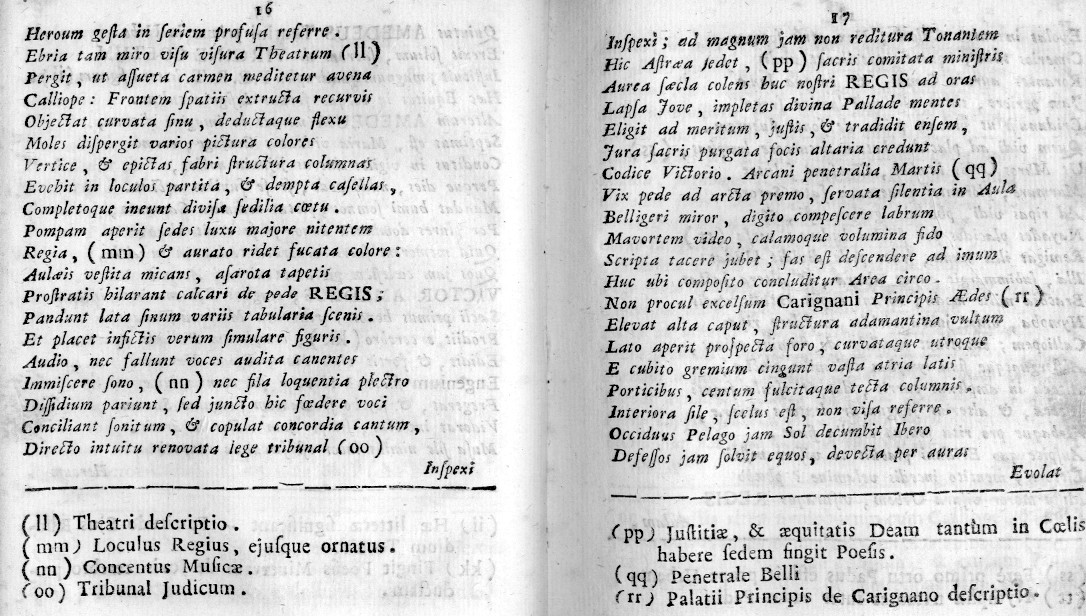 16
Heroum geſta in ſeriem profuſa referre.
Ebria tam miro viſu viſura Theatrum (ll)
Pergit, ut aſſueta carmen meditetur avena
Calliope: Frontem ſpatiis extructa recurvis
Objectat curvata ſinu, deductaque flexu
Moles diſpergit varios pictura colores
Vertice, & epictas fabri ſtructura columnas
Evehit in loculos partita, & dempta caſellas,
Completoque ineunt diviſa ſedilia cœtu.
Pompam aperit ſedes luxu majore nitentem
Regia, (mm) & aurato ridet fucata colore:
Aulæis veſtita micans, aſarota tapetis
Proſtratis hilarant calcari de pede REGIS;
Pandunt lata ſinum variis tabularia ſcenis.
Et placet inſictis verum ſimulare figuris.
Audio, nec fallunt voces audita canentes
Immiſcere ſono, (nn) nec fila loquentia plectro
Diſſidium pariunt, ſed juncto hic fœdere voci
Conciliant ſonitum, & copulat concordia cantum,
Directo intuitu renovata lege tribunal (oo)
Inſpexi
(ll) Theatri deſcriptio.
(mm) Loculus Regius, ejuſque ornatus.
(nn) Concentus Muſicæ.
(oo) Tribunal Judicum.
17
Inſpexi; ad magnum jam non reditura Tonantem
Hic Aſtræa ſedet, (pp) ſacris comitata miniſtris
Aurea ſæcla colens huc noſtri REGIS ad oras
Lapſa Jove, impletas divina Pallade mentes
Eligit ad meritum, juſtis, & tradidit enſem,
Jura ſacris purgata focis altaria credunt
Codice Victorio. Arcani penetralia Martis (qq)
Vix pede ad arcta premo, ſervata ſilentia in Aula
Belligeri miror, digito compeſcere labrum
Mavortem video, calamoque volumina fido
Scripta tacere jubet; fas eſt deſcendere ad imum
Huc ubi compoſito concluditur Area circo.
Non procul excelſum Carignani Principis Ædes (rr)
Elevat alta caput, ſtructura adamantina vultum
Lato aperit proſpecta foro, curvataque utroque
E cubito gremium cingunt vaſta atria latis
Porticibus, centum fulcitaque tecta columnis.
Interiora ſile, ſcelus eſt, non viſa referre.
Occiduus Pelago jam Sol decumbit Ibero
Defeſſos jam ſolvit equos, devecta per auras
Evolat
(pp) Juſtitiæ, & æquitatis Deam tantùm in Cœlis
habere ſedem fingit Poeſis.
(qq) Penetrale Belli
(rr) Palatii Principis de Carignano deſcriptio.